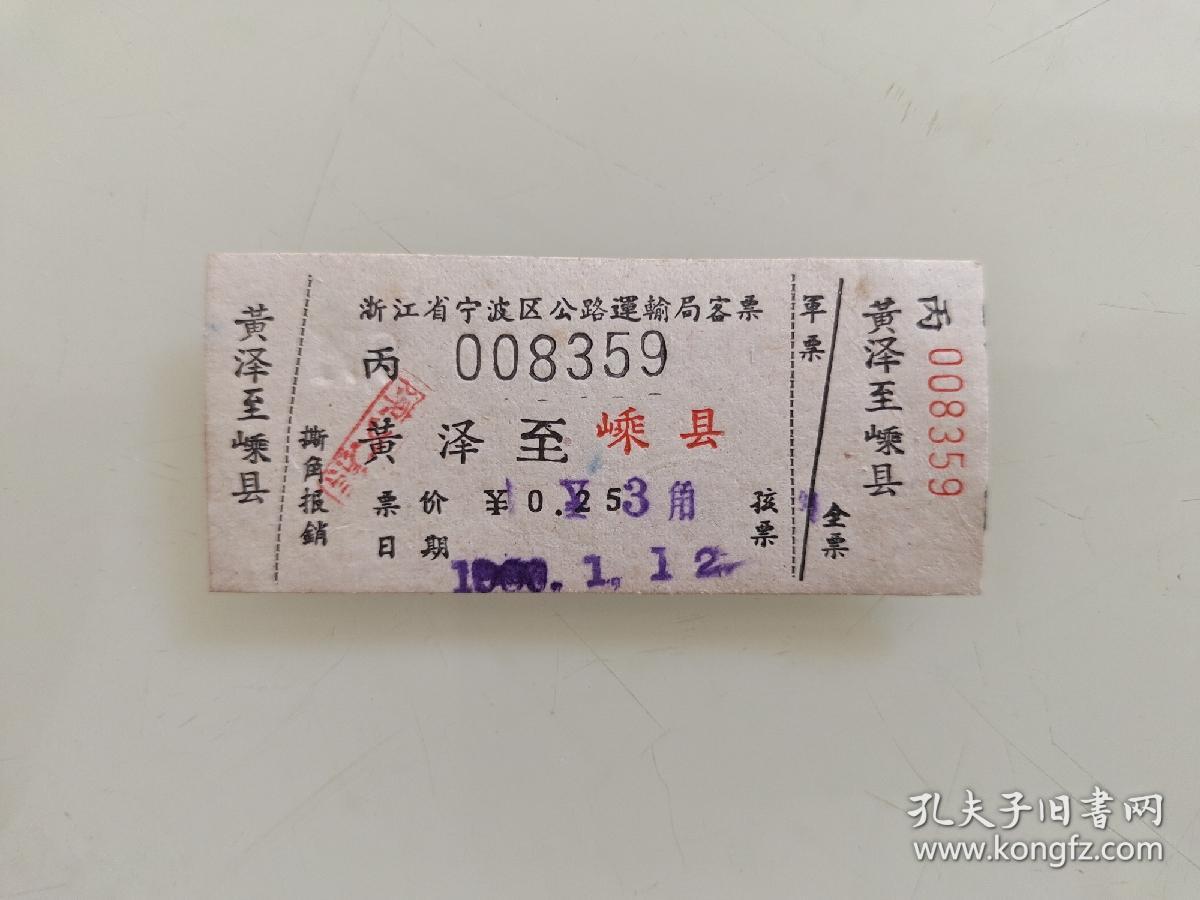 黄泽至嵊县
撕角报銷
浙江省宁波区公路運輸局客票
丙 008359
黄泽至嵊县
票价 ¥0.25
¥3角
日期
1.12
孩票
軍票
全票
黄泽至嵊县
丙 008359
孔夫子旧书网
www.kongfz.com